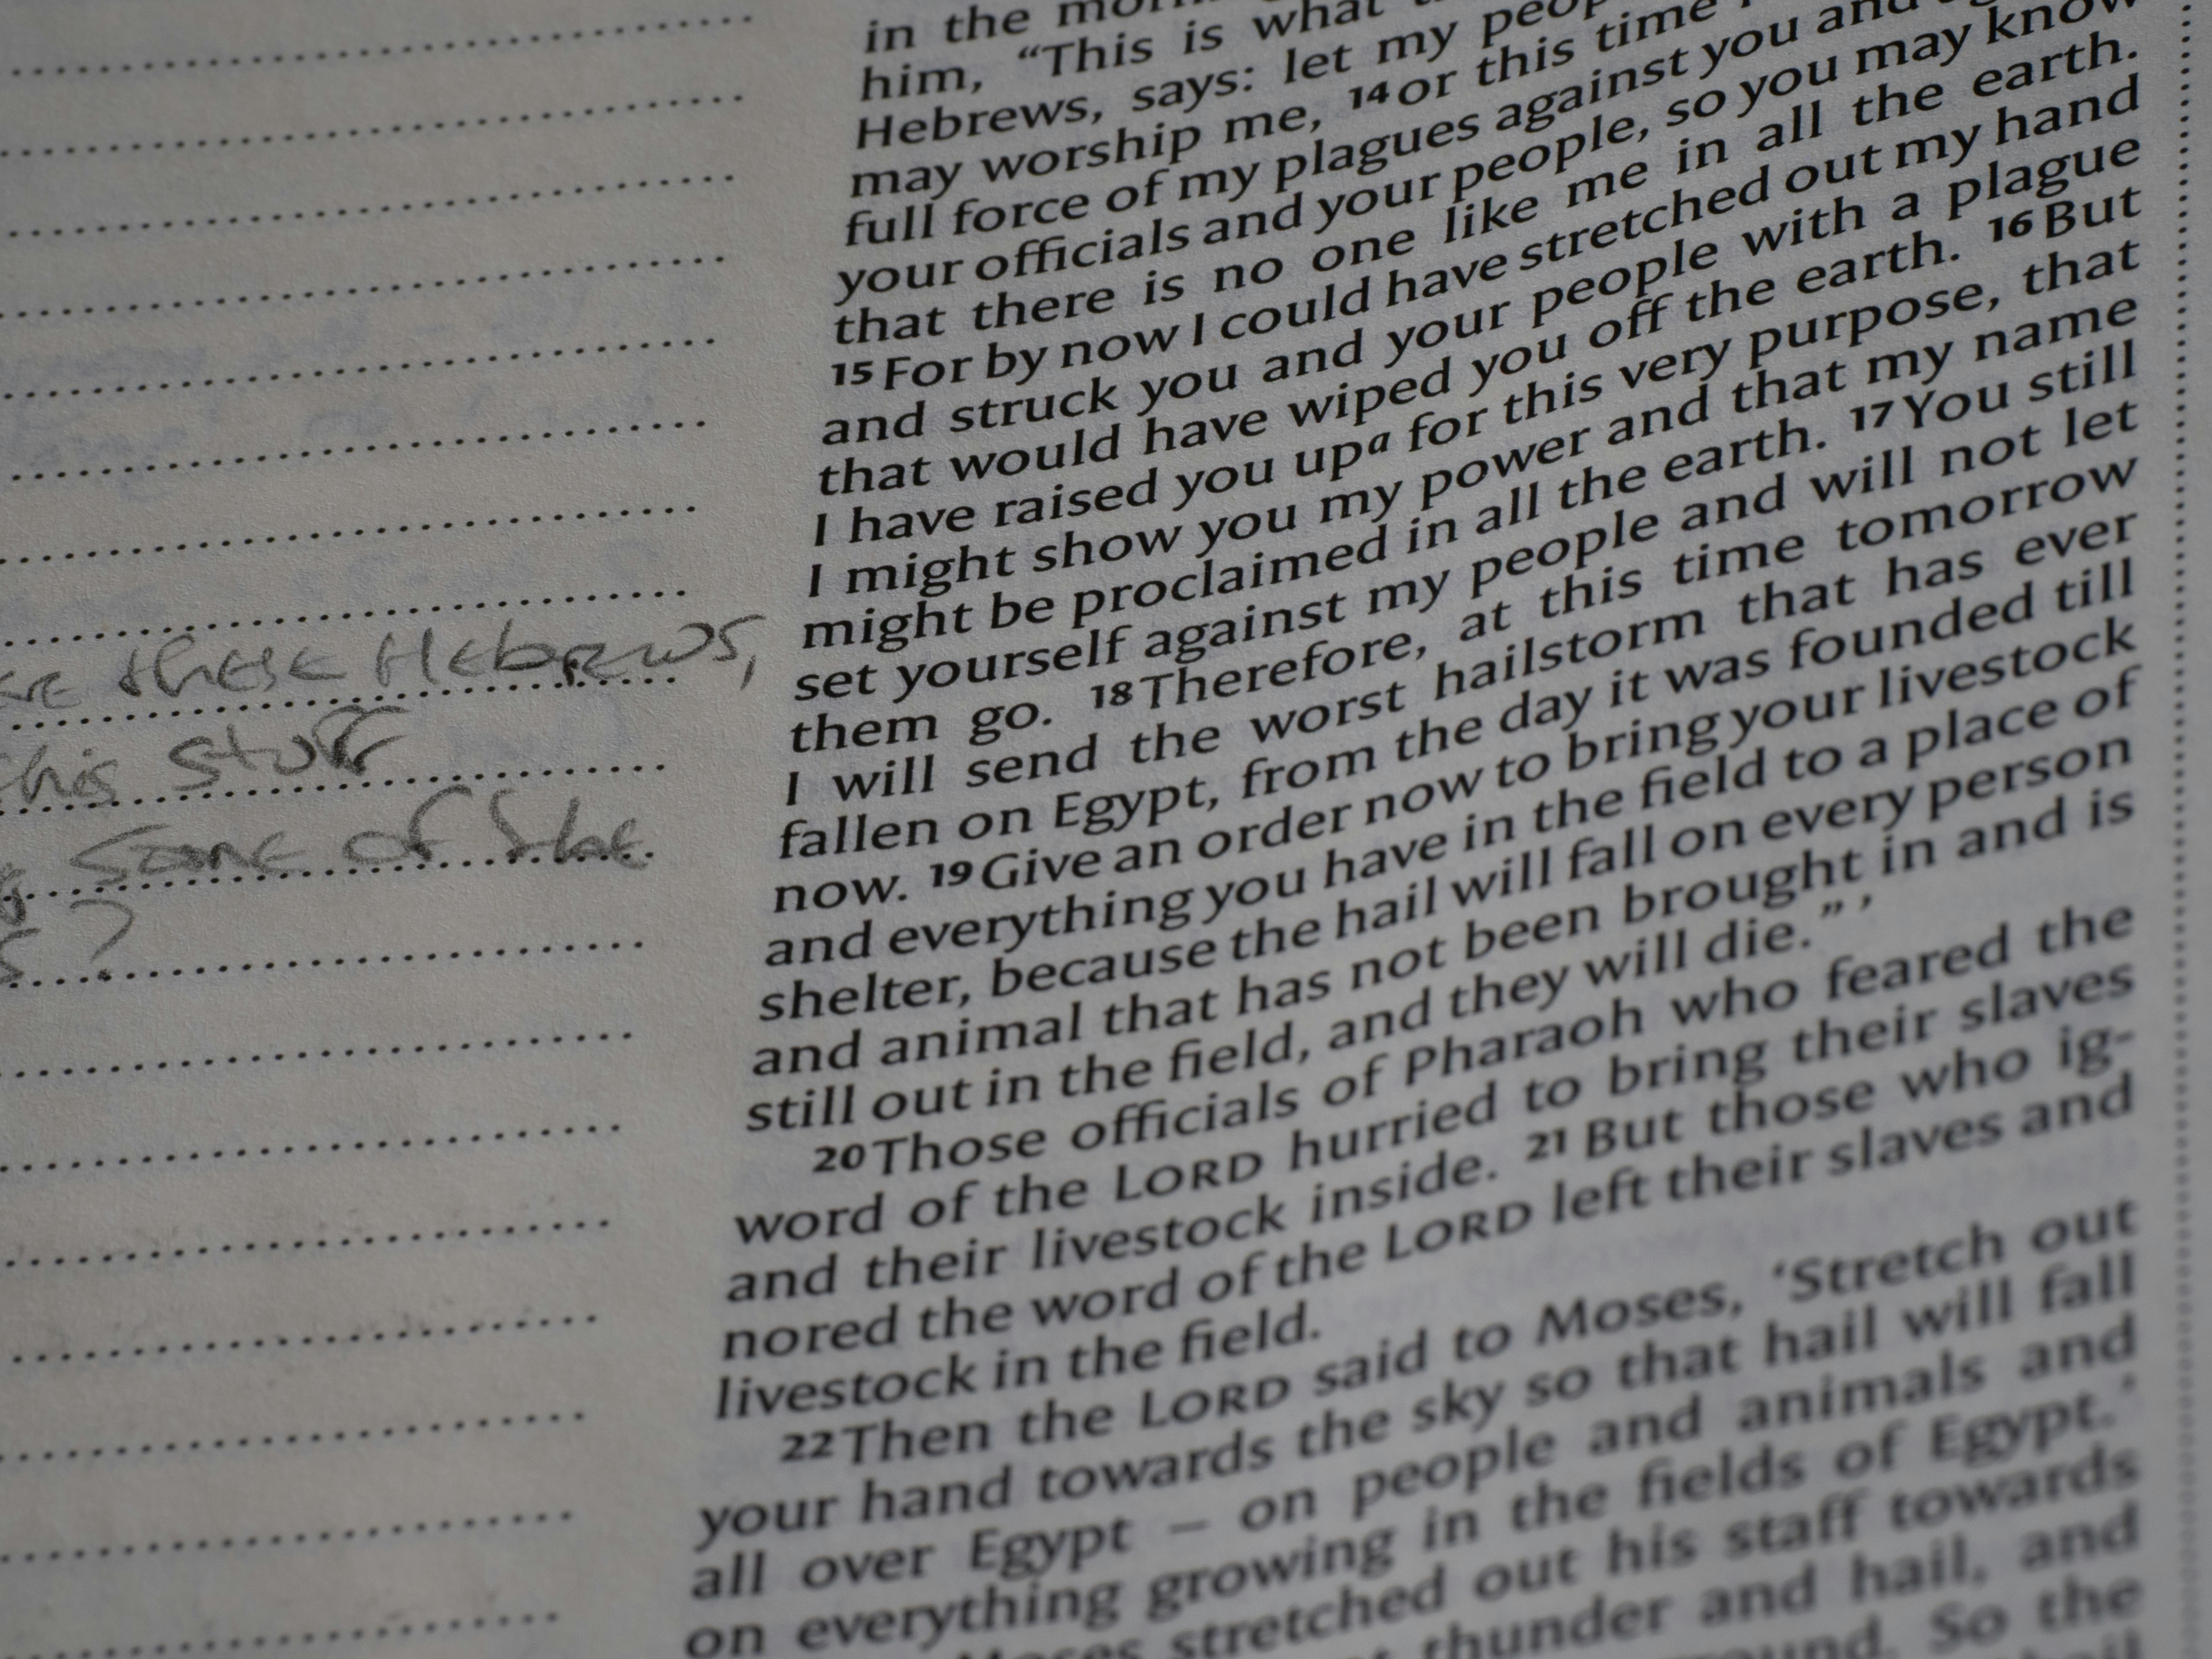 in the
him, “This is what
Hebrews, says: let my
may worship me, 14 or this time
full force of my plagues against you and
your officials and your people, so you may know
that there is no one like me in all the earth.
15 For by now I could have stretched out my hand
and struck you and your people with a plague
that would have wiped you off the earth. 16 But
I have raised you up a for this very purpose, that
I might show you my power and that my name
might be proclaimed in all the earth. 17 You still
set yourself against my people and will not let
them go. 18 Therefore, at this time tomorrow
I will send the worst hailstorm that has ever
fallen on Egypt, from the day it was founded till
now. 19 Give an order now to bring your livestock
and everything you have in the field to a place of
shelter, because the hail will fall on every person
and animal that has not been brought in and is
still out in the field, and they will die.” ’
20 Those officials of Pharaoh who feared the
word of the LORD hurried to bring their slaves
and their livestock inside. 21 But those who ig-
nored the word of the LORD left their slaves and
livestock in the field.
22 Then the LORD said to Moses, ‘Stretch out
your hand towards the sky so that hail will fall
all over Egypt – on people and animals and
on everything growing in the fields of Egypt.’
Moses stretched out his staff towards
thunder and hail, and
So the
these Hebrews,
this stuff
some of the
?